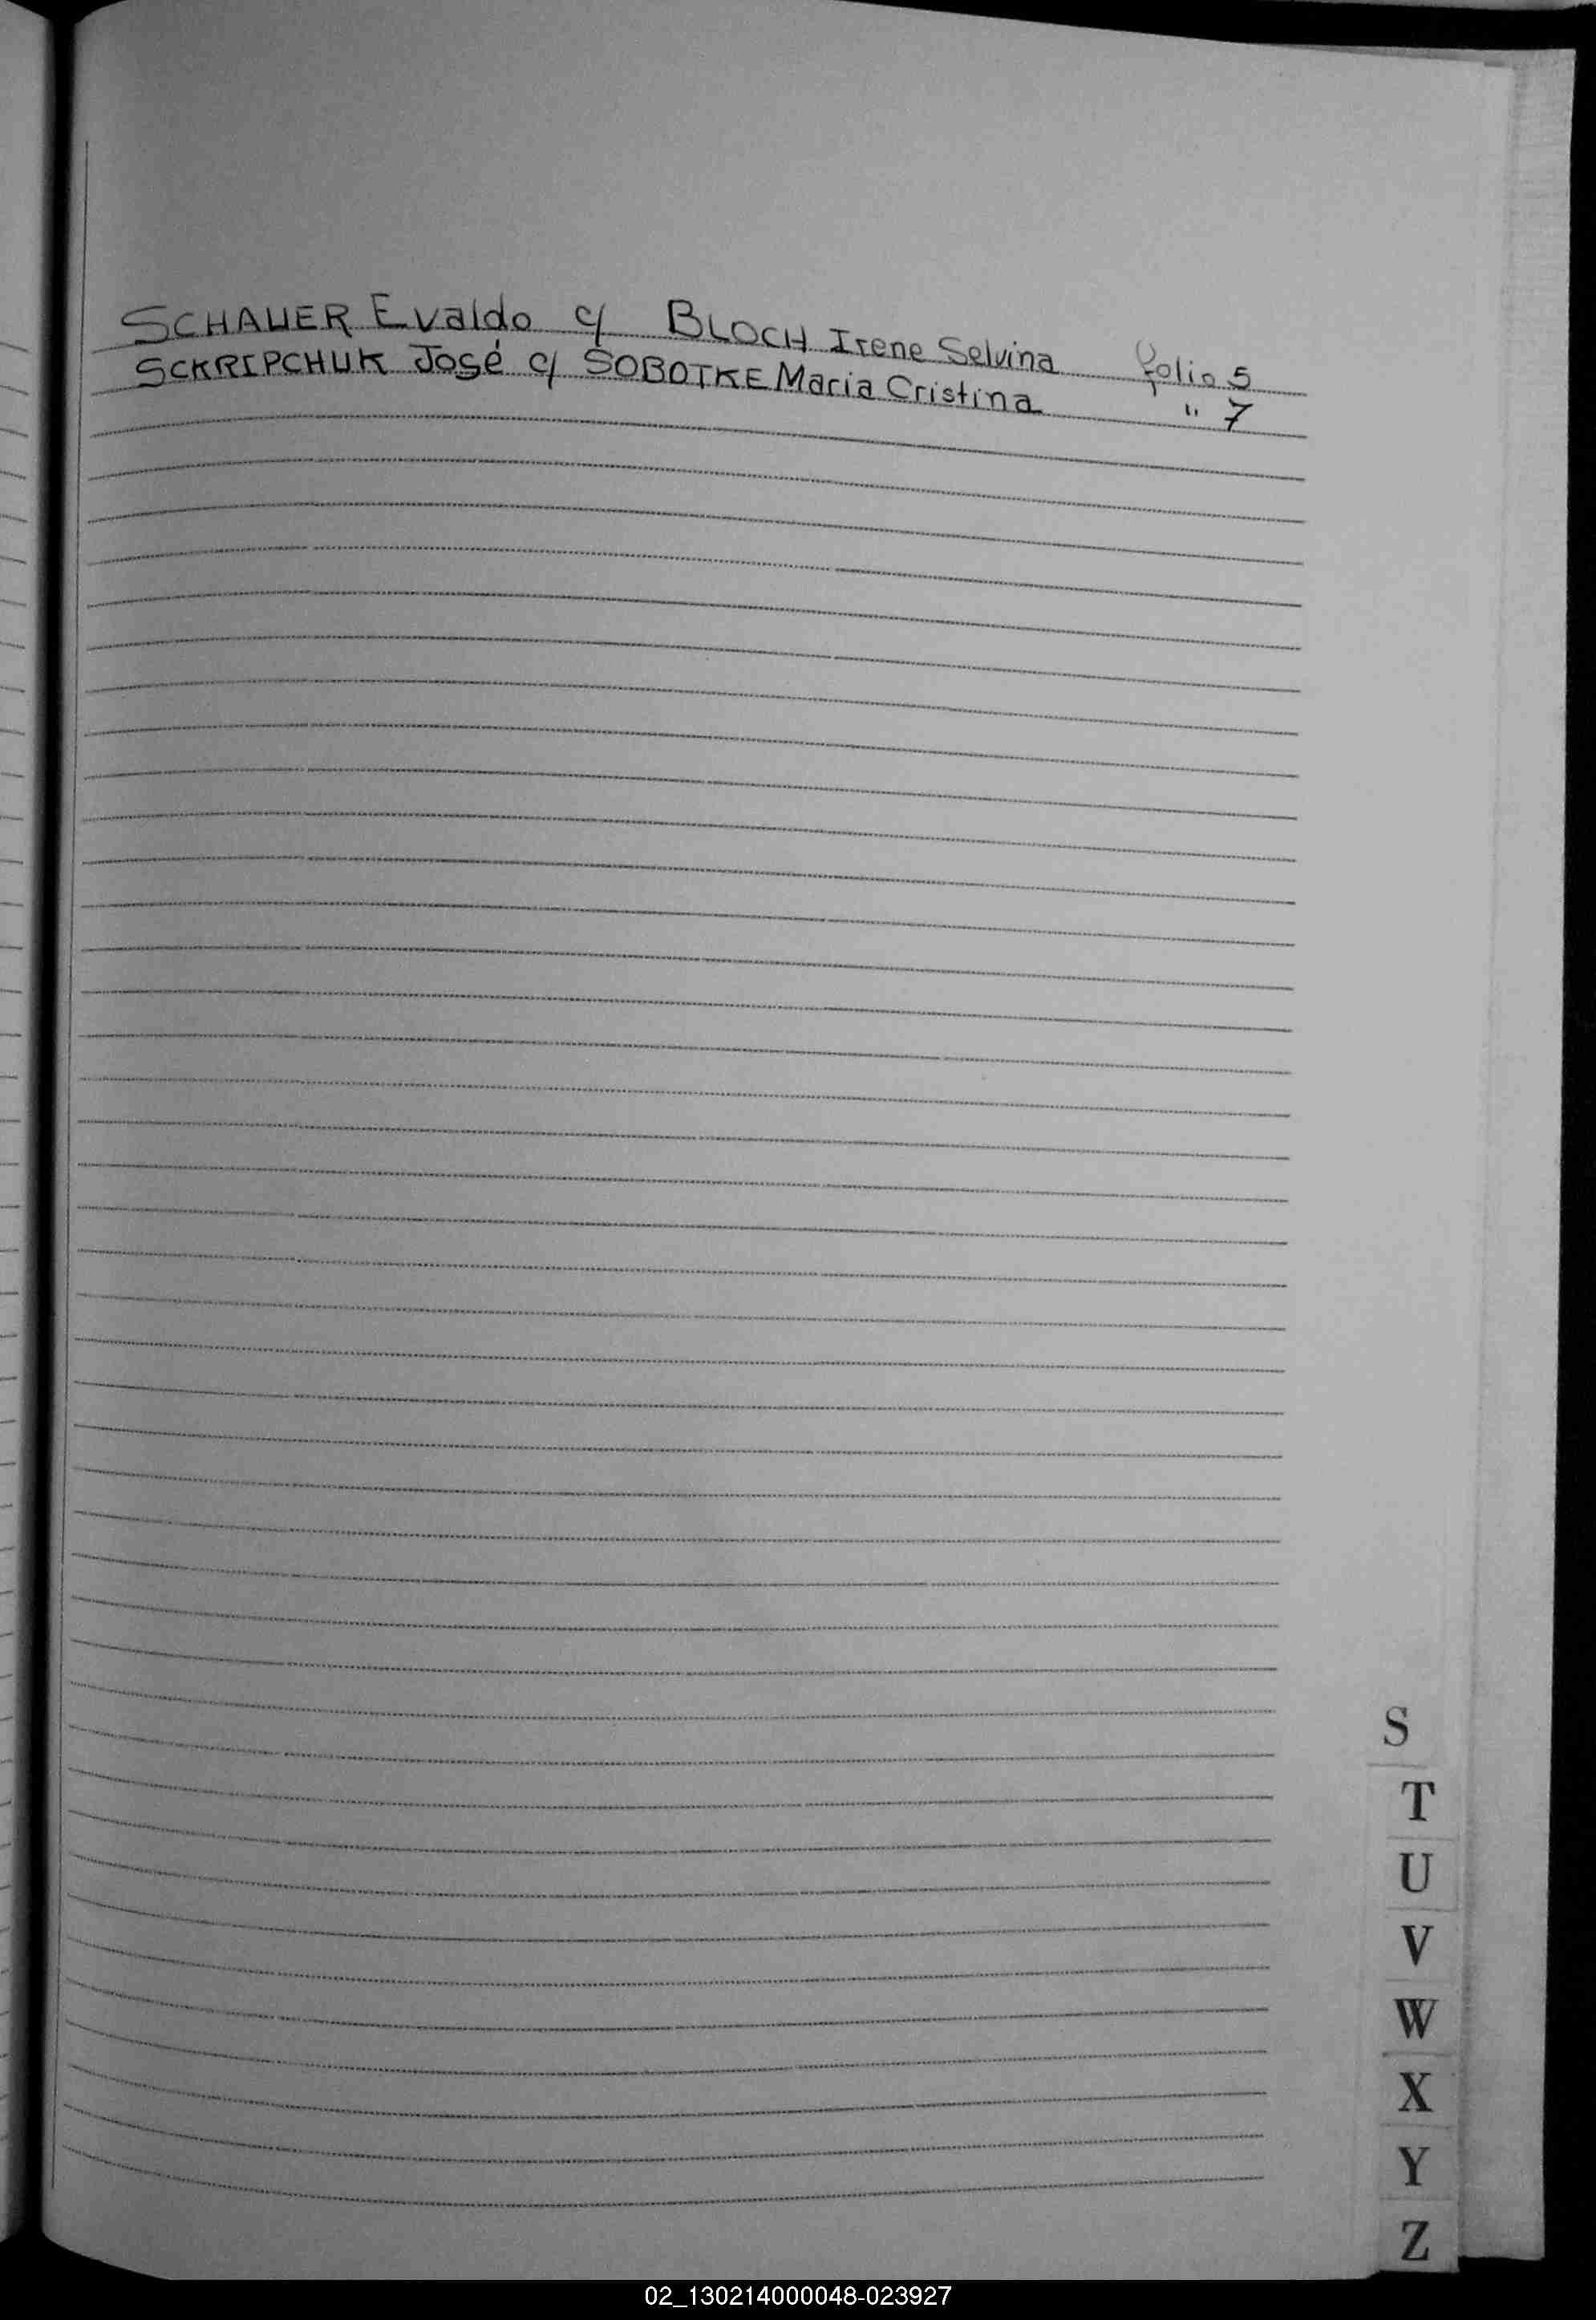 SCHAUER Evaldo c/ BLOCH Irene Selvina folio 5
SCKRIPCHUK José c/ SOBOTKE Maria Cristina " 7
S
T
U
V
W
X
Y
Z
02_130214000048-023927